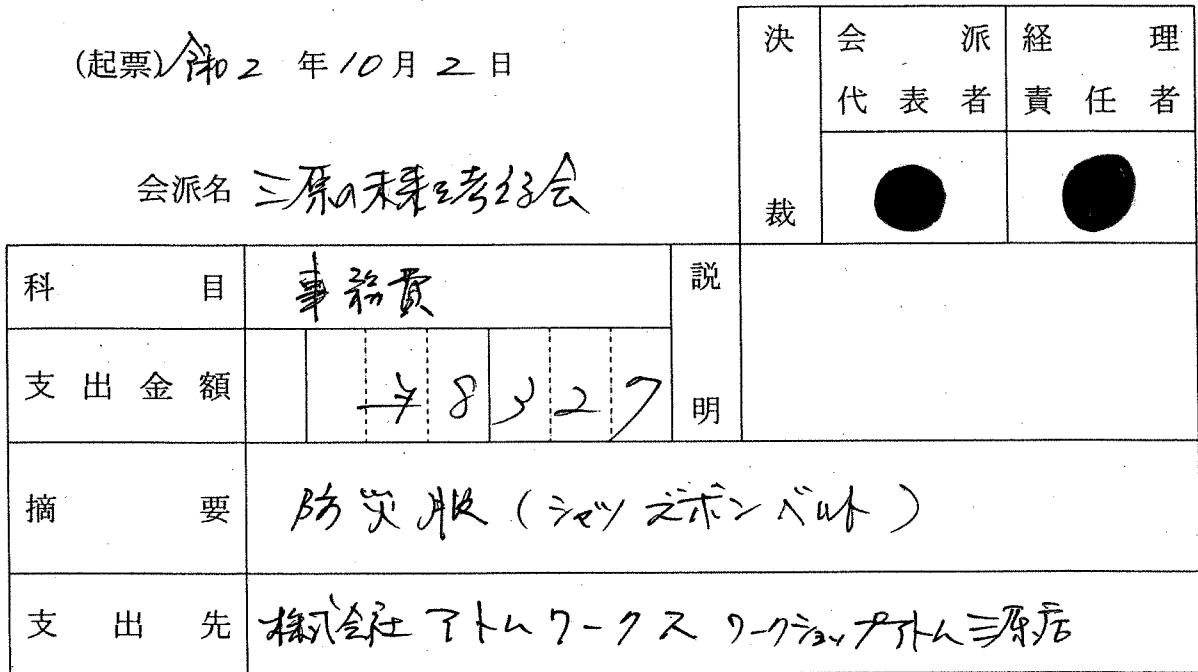 (起票)令和2 年10月2日
会派名 三原の未来を考える会
決裁
会派代表者
経理責任者
科目 事務費
説明
支出金額 ¥8327
摘要 防災服(シャツ ズボン ベルト)
支出先 株式会社アトムワークス ワークショップアトム三原店